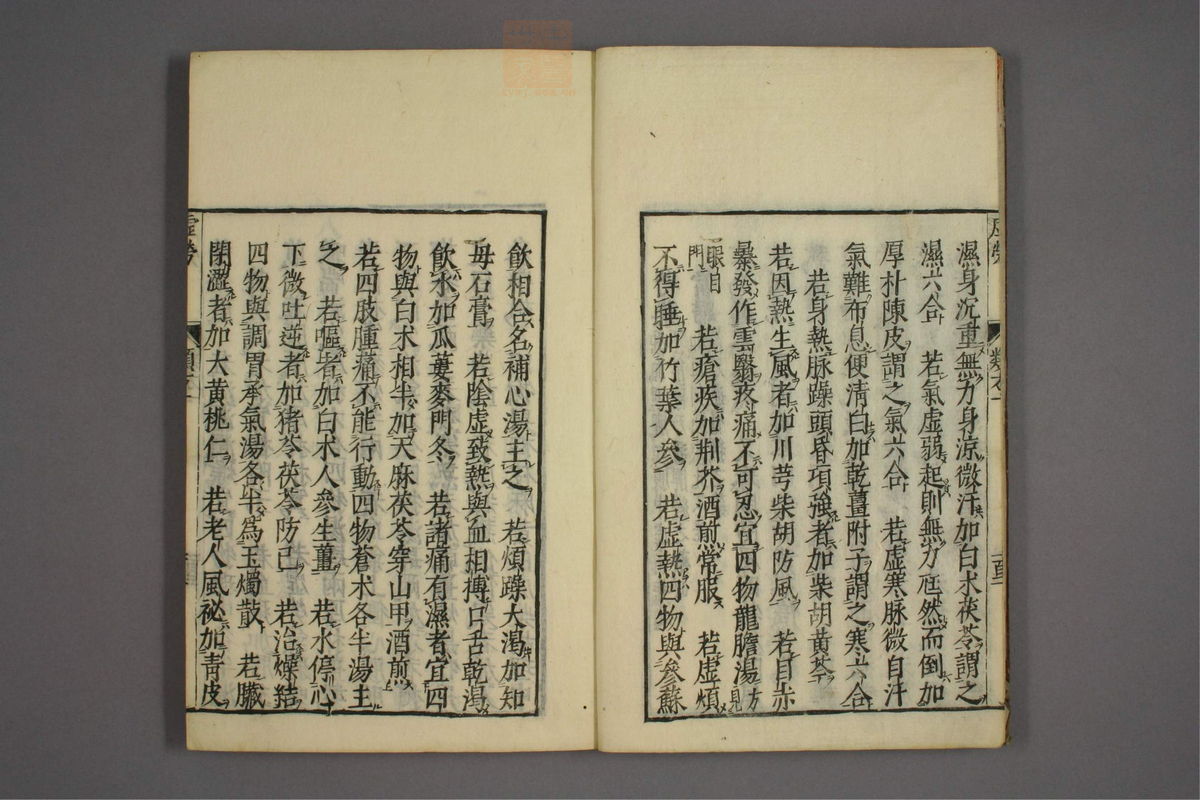 濕身沉重無力身涼微汗加白朮茯苓謂之
濕六合　若氣虛弱起則無力尫然而倒加
厚朴陳皮謂之氣六合　若虛寒脉微自汗
氣難布息便清白加乾薑附子謂之寒六合
若身熱脉躁頭昏項強者加柴胡黄芩
若因熱生風者加川芎柴胡防風　若目赤
暴發作雲翳疼痛不可忍宜四物龍膽湯方見
眼目門　若瘡疾加荆芥酒煎常服　若虛煩
不得睡加竹葉人參　若虛熱四物與參蘇
飲相合名補心湯主之　若煩躁大渴加知
母石膏　若陰虛致熱與血相搏口舌乾渴
飲水加瓜蔞麥門冬　若諸痛有濕者宜四
物與白朮相半加天麻茯苓穿山甲酒煎
若四肢腫痛不能行動四物蒼朮各半湯主
之　若嘔者加白朮人參生薑　若水停心
下微吐逆者加猪苓茯苓防已　若治燥結
四物與調胃承氣湯各半為玉燭散　若臟
閉澀者加大黄桃仁　若老人風祕加青皮
虛勞